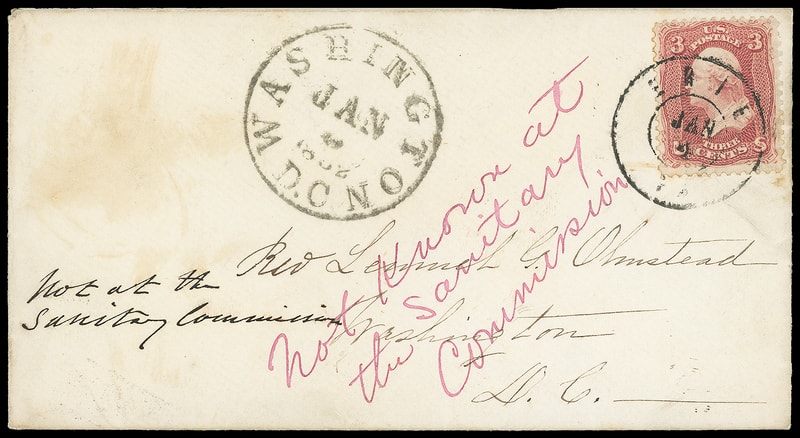 WASHINGTON D.C.
JAN
1862
U.S.
POSTAGE
3 3
THREE
CENTS
ERIE
JAN
PA
Rev Lemuel G Olmstead
Washington
D. C.
Not at the
Sanitary Commission
Not Known at
the Sanitary
Commission